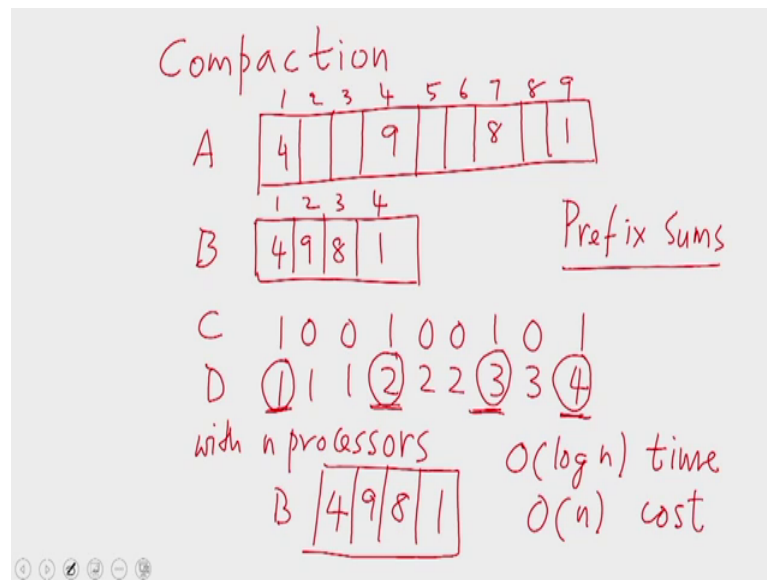 Compaction
1 2 3 4 5 6 7 8 9
A 4 9 8 1
1 2 3 4
B 4 9 8 1 Prefix Sums
C 1 0 0 1 0 0 1 0 1
D 1 1 1 2 2 2 3 3 4
with n processors O(log n) time
B 4 9 8 1 O(n) cost